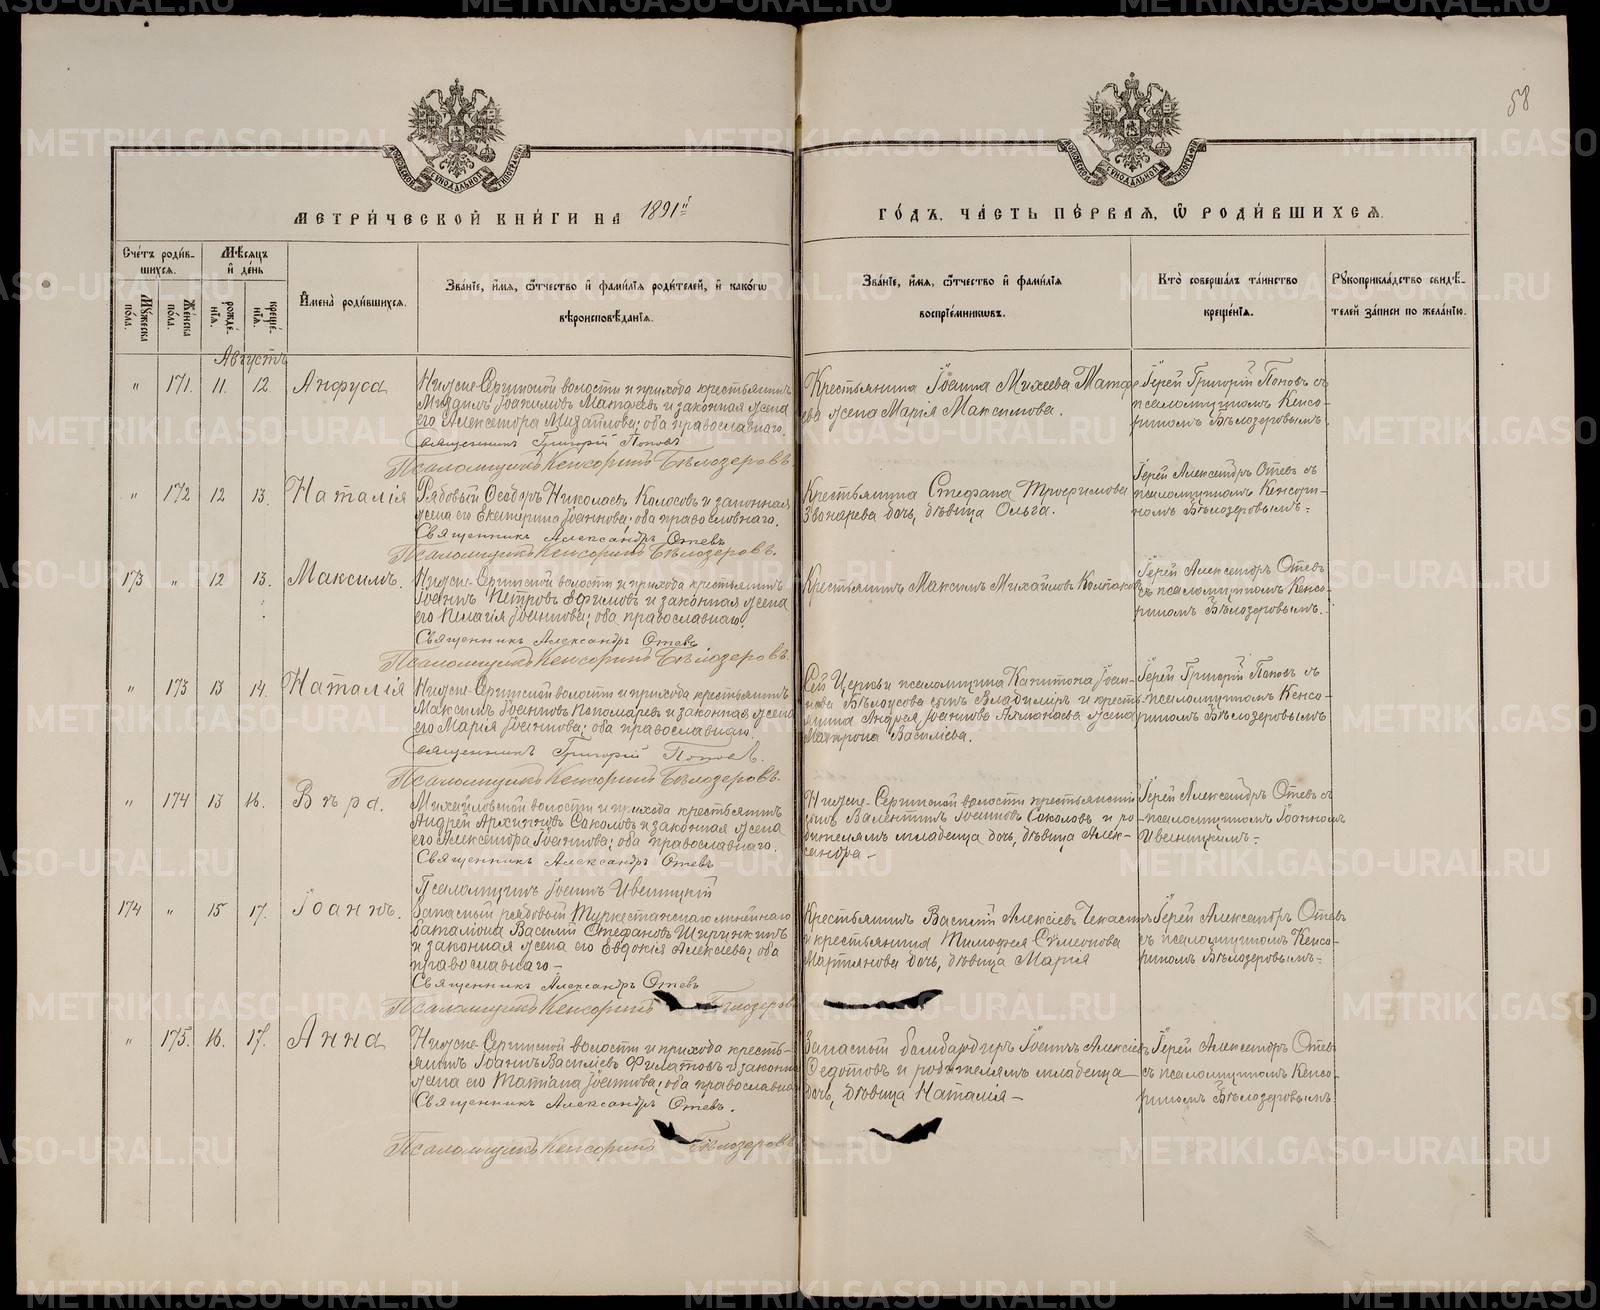 58
МЕТРИ́ЧЕСКОЙ КНИ́ГИ НА 1891й
ГО́ДЪ, ЧА́СТЬ ПЕ́РВАЯ, Ѽ РОДИ́ВШИХСЯ.
Сче́тъ роди́в-
шихся.
Му́жеска по́ла.
Же́нска по́ла.
Мѣ́сяцъ
и҆ де́нь
рожде́нїя.
креще́нїя.
И҆мена̀ роди́вшихся.
Зва́нїе, и҆́мя, ѻ҆́тчество и҆ фами́лїя роди́телей, и҆ како́гѡ
вѣроисповѣ́данїя.
Зва́нїе, и҆́мя, ѻ҆́тчество и҆ фами́лїя
воспрїе́мникѡвъ.
Кто̀ соверша́лъ та́инство
креще́нїя.
Рꙋкоприкла́дство свидѣ́-
телей за́писи по жела́нїю.
Августъ
" 171. 11. 12 Анфуса
Нижне-Сергинской волости и прихода крестьянинъ
Михаилъ Іоакимовъ Матаевъ и законная жена
его Александра Михайлова; оба православнаго.
Священникъ Григорій Поповъ
Псаломщикъ Кенсоринъ Бѣлозеровъ.
Крестьянина Іоанна Михеева
жена Марія Максимова.
Іерей Григорій Поповъ съ
псаломщикомъ Кенсо-
риномъ Бѣлозеровымъ.
" 172 12 13. Наталія
Рядовый Ѳеодоръ Николаевъ Колосовъ и законная
жена его Екатерина Іоаннова; оба православнаго.
Священникъ Александръ Отевъ
Псаломщикъ Кенсоринъ Бѣлозеровъ.
Крестьянина Стефана Трофимова
Звонарева дочь, дѣвица Ольга.
Іерей Александръ Отевъ съ
псаломщикомъ Кенсори-
номъ Бѣлозеровымъ.
173 " 12 13. Максимъ.
Нижне-Сергинской волости и прихода крестьянинъ
Іоаннъ Петровъ Ефимовъ и законная жена
его Пелагія Іоаннова; оба православнаго.
Священникъ Александръ Отевъ
Псаломщикъ Кенсоринъ Бѣлозеровъ.
Крестьянинъ Максимъ Михайловъ Колпаковъ
Іерей Александръ Отевъ
съ псаломщикомъ Кенсо-
риномъ Бѣлозеровымъ.
" 173 13 14. Наталія
Нижне-Сергинской волости и прихода крестьянинъ
Максимъ Іоанновъ Пономаревъ и законная жена
его Марія Іоаннова; оба православнаго.
Священникъ Григорій Поповъ.
Псаломщикъ Кенсоринъ Бѣлозеровъ.
Сей Церкви псаломщика Капитона Іоан-
нова Бѣлоусова сынъ Владиміръ и кресть-
янина Андрея Іоаннова жена
Матрона Василіева.
Іерей Григорій Поповъ съ
псаломщикомъ Кенсо-
риномъ Бѣлозеровымъ
" 174 13 16. Вѣра.
Михайловской волости и прихода крестьянинъ
Андрей Архиповъ Соколовъ и законная жена
его Александра Іоаннова; оба православнаго.
Священникъ Александръ Отевъ
Псаломщикъ Іоаннъ Ивеницкій
Нижне-Сергинской волости крестьянскій
сынъ Валентинъ Іоанновъ Соколовъ и ро-
дителямъ младенца дочь, дѣвица Алек-
сандра –
Іерей Александръ Отевъ съ
псаломщикомъ Іоанномъ
Ивеницкимъ.
174 " 15 17. Іоаннъ.
Запасный рядовый Туркестанскаго линейнаго
баталіона Василій Стефановъ Ширинкинъ
и законная жена его Евдокія Алексіева; оба
православнаго –
Священникъ Александръ Отевъ
Псаломщикъ Кенсоринъ Бѣлозеровъ
Крестьянинъ Василій Алексіевъ
и крестьянина Тимофея Сѵмеонова
Мартьянова дочь, дѣвица Марія
Іерей Александръ Отевъ
съ псаломщикомъ Кенсо-
риномъ Бѣлозеровымъ.
" 175. 16. 17. Анна
Нижне-Сергинской волости и прихода кресть-
янинъ Іоаннъ Василіевъ Филатовъ и законная
жена его Татіана Іоаннова; оба православна
Священникъ Александръ Отевъ.
Псаломщикъ Кенсоринъ Бѣлозеровъ
Запасный бомбардиръ Іоаннъ Алексіевъ
Ѳедотовъ и родителямъ младенца
дочь, дѣвица Наталія –
Іерей Александръ Отевъ
съ псаломщикомъ Кенсо-
риномъ Бѣлозеровымъ